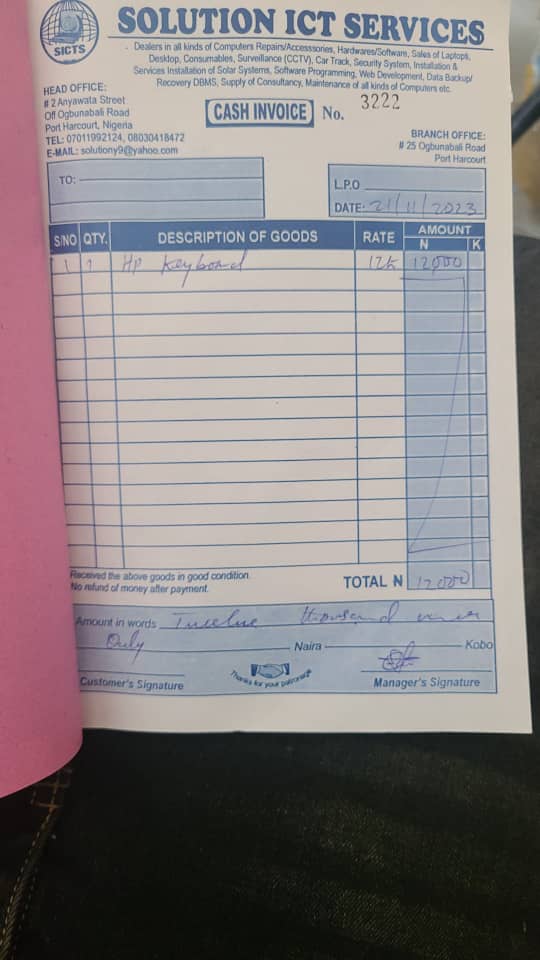 SICTS
SOLUTION ICT SERVICES
Dealers in all kinds of Computers Repairs/Accesssories, Hardwares/Software, Sales of Laptops,
Desktop, Consumables, Surveillance (CCTV), Car Track, Security System, Installation &
Services Installation of Solar Systems, Software Programming, Web Development, Data Backup/
Recovery DBMS, Supply of Consultancy, Maintenance of all kinds of Computers etc.
HEAD OFFICE:
# 2 Anyawata Street
Off Ogbunabali Road
Port Harcourt, Nigeria
TEL: 07011992124, 08030418472
E-MAIL: solutiony9@yahoo.com
CASH INVOICE No. 3222
BRANCH OFFICE:
# 25 Ogbunabali Road
Port Harcourt
TO:
L.P.O
DATE: 21/11/2023
S/NO QTY. DESCRIPTION OF GOODS RATE AMOUNT
N K
1 1 HP Keyboard 12k 12000
Received the above goods in good condition.
No refund of money after payment.
TOTAL N 12000
Amount in words Twelve thousand naira
Only Naira Kobo
Customer's Signature
Thanks for your patronage
Manager's Signature